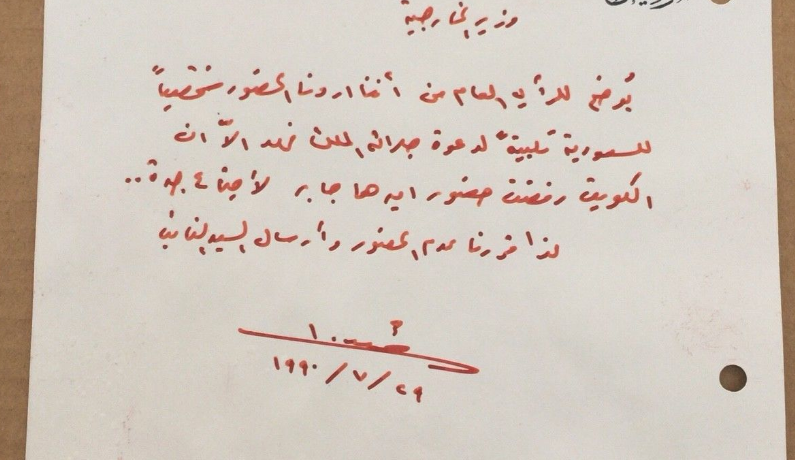 وزير الخارجية
يوضح للرأي العام من أننا اردنا الحضور شخصياً
للسعودية تلبيةً لدعوة جلالة الملك فهد الاّ ان
الكويت رفضت حضور اميرها جابر لأجتماع جدة..
لذا قررنا عدم الحضور وأرسال السيد النائب
١٩٩٠/٧/٢٩